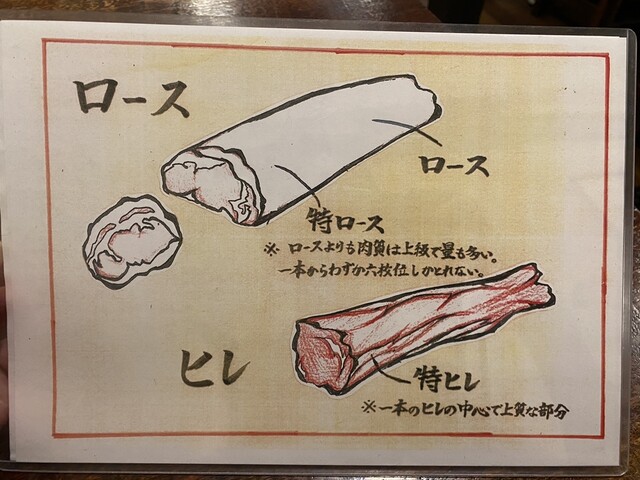 ロース
ロース
特ロース
※ ロースよりも肉質は上級で量も多い。
一本からわずか六枚位しかとれない。
ヒレ
特ヒレ
※一本のヒレの中心で上質な部分